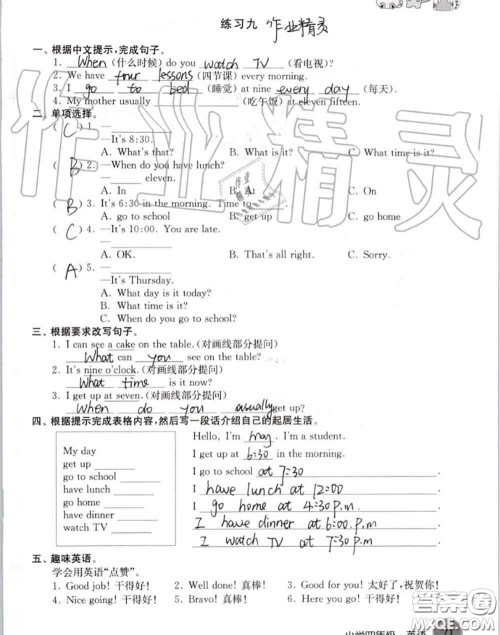 练习九 作业精灵
一、根据中文提示,完成句子。
1. When (什么时候) do you watch TV (看电视)?
2. We have four lessons (四节课) every morning.
3. I go to bed (睡觉) at nine every day (每天).
4. My mother usually (吃午饭) at eleven fifteen.
二、单项选择。
(C) 1. —
—It's 8:30.
A. What's that? B. What is it? C. What time is it?
(B) 2. —When do you have lunch?
— eleven.
A. In B. At C. On
(B) 3. It's 6:30 in the morning. Time to .
A. go to school B. get up C. go home
(C) 4. —It's 10:00. You are late.
—
A. OK. B. That's all right. C. Sorry.
(A) 5. —
—It's Thursday.
A. What day is it today?
B. What time is it?
C. When do you go to school?
三、根据要求改写句子。
1. I can see a cake on the table. (对画线部分提问)
What can you see on the table?
2. It's nine o'clock. (对画线部分提问)
What time is it now?
3. I get up at seven. (对画线部分提问)
When do you usually get up?
四、根据提示完成表格内容,然后写一段话介绍自己的起居生活。
My day
get up
go to school
have lunch
go home
have dinner
watch TV
Hello, I'm . I'm a student.
I get up at 6:30 in the morning.
I go to school at 7:30
I have lunch at 12:00
I go home at 4:30 P.m.
I have dinner at 6:00 P.m
I watch TV at 7:30 P.m.
五、趣味英语。
学会用英语“点赞”。
1. Good job! 干得好! 2. Well done! 真棒! 3. Good for you! 太好了,祝贺你!
4. Nice going! 干得好! 5. Bravo! 真棒! 6. Way to go! 干得好!
小学四年级 英语
作业精灵